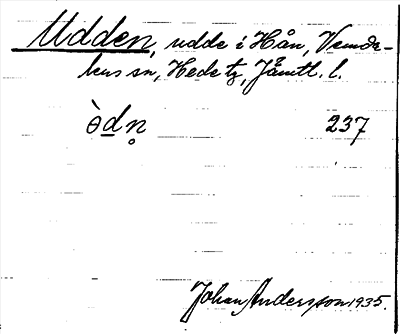 Udden, udde i Hån, Vemda-
lens sn, Hede tg, Jämtl. l.
òdn̥ 237
Johan Andersson 1935.